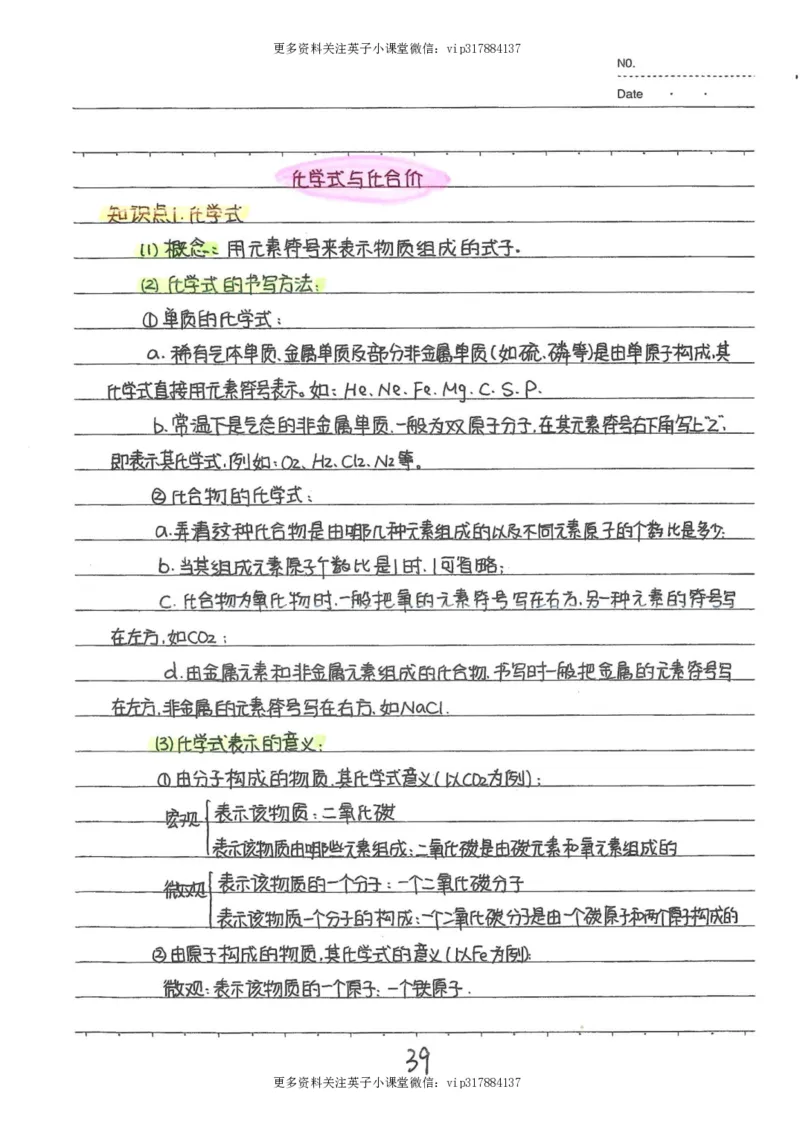 更多资料关注英子小课堂微信：vip317884137
NO.
Date
化学式与化合价
知识点1.化学式
(1)概念：用元素符号来表示物质组成的式子.
(2)化学式的书写方法：
①单质的化学式：
a.稀有气体单质、金属单质及部分非金属单质(如硫、磷等)是由单原子构成,其
化学式直接用元素符号表示。如：He、Ne、Fe、Mg、C、S、P.
b.常温下是气态的非金属单质,一般为双原子分子,在其元素符号右下角写上"2",
即表示其化学式,例如:O2、H2、Cl2、N2等。
②化合物的化学式：
a.弄清这种化合物是由哪几种元素组成的以及不同元素原子的个数比是多少;
b.当其组成元素原子个数比是1时,1可省略;
c.化合物为氧化物时,一般把氧的元素符号写在右方,另一种元素的符号写
在左方,如CO2;
d.由金属元素和非金属元素组成的化合物,书写时一般把金属的元素符号写
在左方,非金属的元素符号写在右方,如NaCl.
(3)化学式表示的意义：
①由分子构成的物质,其化学式意义(以CO2为例)：
宏观 表示该物质：二氧化碳
表示该物质由哪些元素组成：二氧化碳是由碳元素和氧元素组成的
微观 表示该物质的一个分子：一个二氧化碳分子
表示该物质一个分子的构成：一个二氧化碳分子是由一个碳原子和两个氧原子构成的
②由原子构成的物质,其化学式的意义(以Fe为例)：
微观：表示该物质的一个原子：一个铁原子.
39
更多资料关注英子小课堂微信：vip317884137